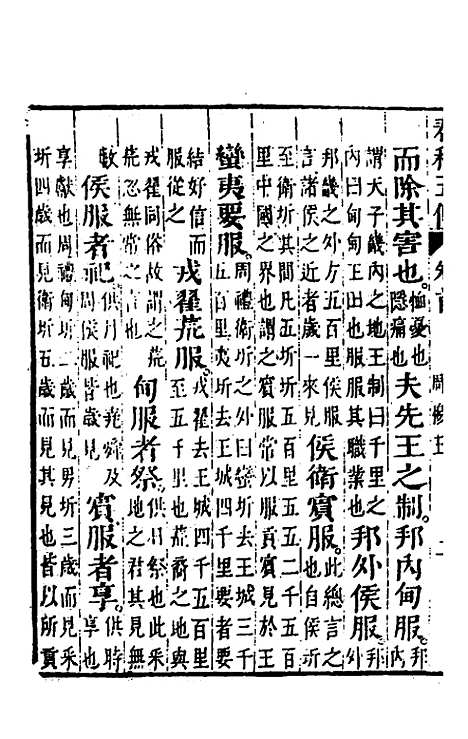 而除其害也。恤憂也
隱痛也
夫先王之制。邦內甸服。邦
內
謂天子畿內之地王制曰千里之
內曰甸甸王田也服服其職業也
邦外侯服。邦
外
邦畿之外方五百里侯服
言諸侯之近者歲一來見
侯衛賓服。此總言之
也自侯圻
至衛圻其間凡五圻圻五百里五五二千五百
里中國之界也謂之賓服常以服貢賓見於王
蠻夷要服。周禮衛圻之外曰蠻圻去王城三千
五百里夷圻去王城四千里要者要
結好信而
服從之
戎翟荒服。戎翟去王城四千五百里
至五千里也荒裔之地與
戎翟同俗故謂之荒
荒忽無常之言也
甸服者祭。供日祭也此采
地之君其見無
數
侯服者祀。供月祀也堯舜及
周侯服皆歲見
賓服者享。供時
享也
享獻也周禮甸圻二歲而見男圻三歲而見采
圻四歲而見衛圻五歲而見其見也皆以所貢